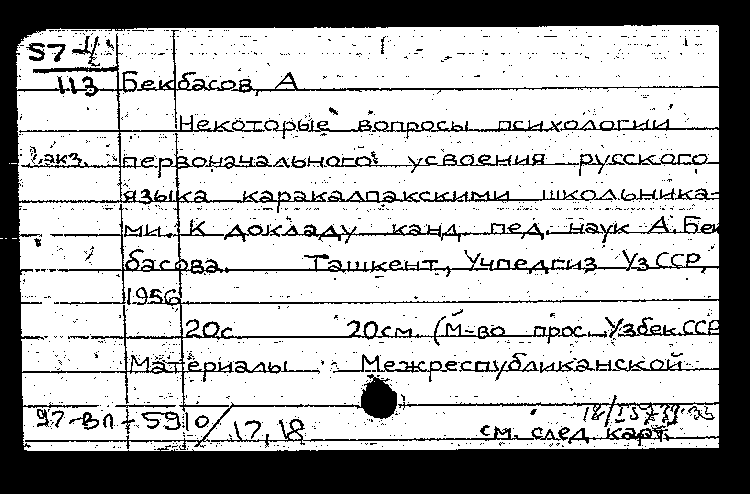 57-4
113 Бекбасов, А
Некоторые вопросы психологии
2 экз. первоначального усвоения русского
языка каракалпакскими школьника-
ми. К докладу канд. пед. наук А. Бек
басова. Ташкент, Учпедгиз УзССР,
1956
20с. 20см. (М-во прос. Узбек.ССР
Материалы Межреспубликанской
97-ВП-5910/17,18
см. след карт.